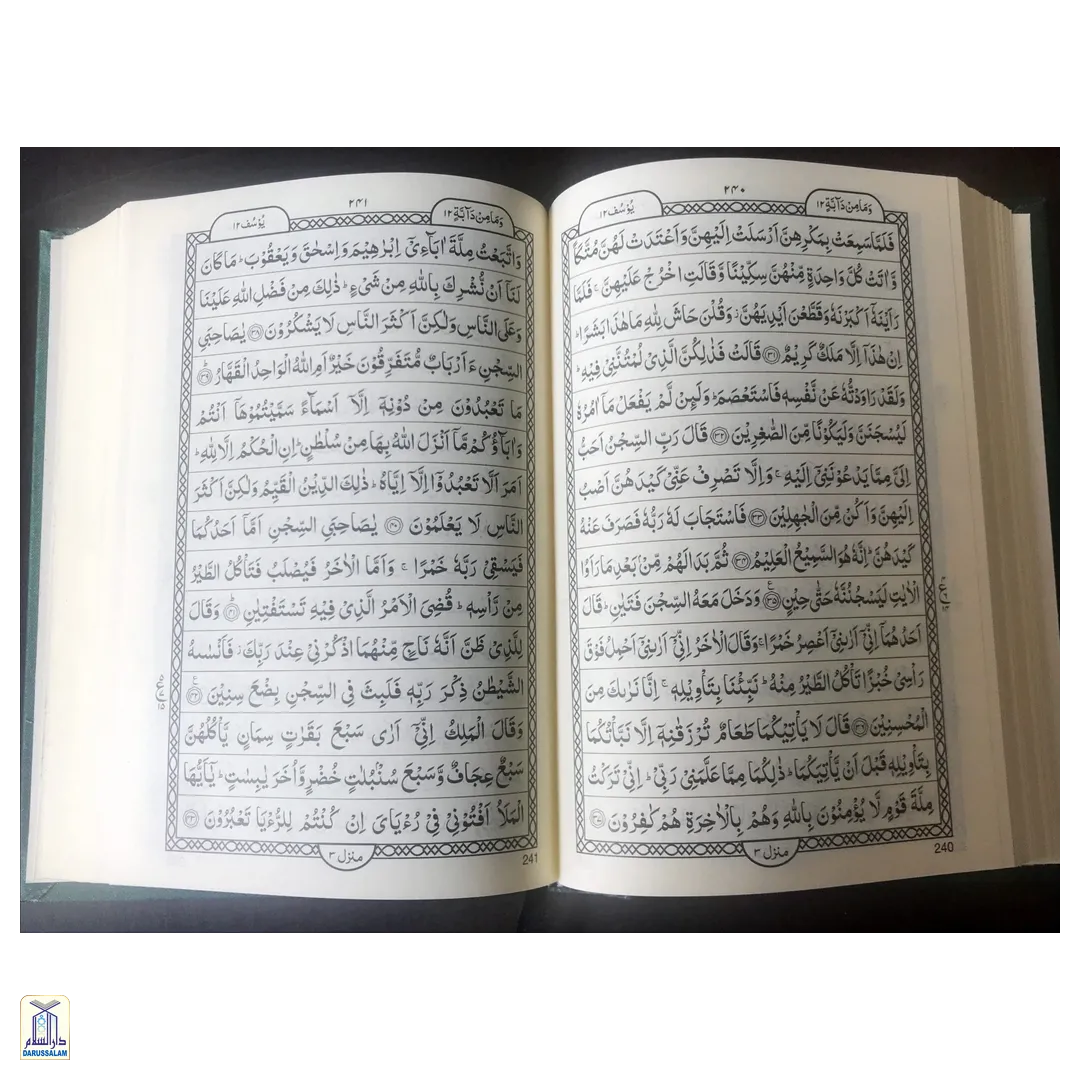 وَمَا مِنْ دَآبَّةٍ ١٢
٢۴٠
يُوْسُف ١٢
فَلَمَّا سَمِعَتْ بِمَكْرِهِنَّ اَرْسَلَتْ اِلَيْهِنَّ وَاَعْتَدَتْ لَهُنَّ مُتَّكَاً
وَّاٰتَتْ كُلَّ وَاحِدَةٍ مِّنْهُنَّ سِكِّيْنًا وَّقَالَتِ اخْرُجْ عَلَيْهِنَّ ۚ فَلَمَّا
رَاَيْنَهٗۤ اَكْبَرْنَهٗ وَقَطَّعْنَ اَيْدِيَهُنَّ ۡ وَقُلْنَ حَاشَ لِلّٰهِ مَا هٰذَا بَشَرًا ؕ
اِنْ هٰذَاۤ اِلَّا مَلَكٌ كَرِيْمٌ ﴿٣١﴾ قَالَتْ فَذٰلِكُنَّ الَّذِىْ لُمْتُنَّنِىْ فِيْهِ ؕ
وَلَقَدْ رَاوَدْتُّهٗ عَنْ نَّفْسِهٖ فَاسْتَعْصَمَ ؕ وَلَئِنْ لَّمْ يَفْعَلْ مَاۤ اٰمُرُهٗ
لَيُسْجَنَنَّ وَلَيَكُوْنًا مِّنَ الصّٰغِرِيْنَ ﴿٣٢﴾ قَالَ رَبِّ السِّجْنُ اَحَبُّ
اِلَىَّ مِمَّا يَدْعُوْنَنِىْۤ اِلَيْهِ ۚ وَاِلَّا تَصْرِفْ عَنِّىْ كَيْدَهُنَّ اَصْبُ
اِلَيْهِنَّ وَاَكُنْ مِّنَ الْجٰهِلِيْنَ ﴿٣٣﴾ فَاسْتَجَابَ لَهٗ رَبُّهٗ فَصَرَفَ عَنْهُ
كَيْدَهُنَّ ؕ اِنَّهٗ هُوَ السَّمِيْعُ الْعَلِيْمُ ﴿٣٤﴾ ثُمَّ بَدَا لَهُمْ مِّنْۢ بَعْدِ مَا رَاَوُا
الْاٰيٰتِ لَيَسْجُنُنَّهٗ حَتّٰى حِيْنٍ ﴿٣٥﴾ وَدَخَلَ مَعَهُ السِّجْنَ فَتَيٰنِ ؕ قَالَ
اَحَدُهُمَاۤ اِنِّىْۤ اَرٰىنِىْۤ اَعْصِرُ خَمْرًا ۚ وَقَالَ الْاٰخَرُ اِنِّىْۤ اَرٰىنِىْۤ اَحْمِلُ فَوْقَ
رَاْسِىْ خُبْزًا تَاْكُلُ الطَّيْرُ مِنْهُ ؕ نَبِّئْنَا بِتَاْوِيْلِهٖ ۚ اِنَّا نَرٰىكَ مِنَ
الْمُحْسِنِيْنَ ﴿٣٦﴾ قَالَ لَا يَاْتِيْكُمَا طَعَامٌ تُرْزَقٰنِهٖۤ اِلَّا نَبَّاْتُكُمَا
بِتَاْوِيْلِهٖ قَبْلَ اَنْ يَّاْتِيَكُمَا ؕ ذٰلِكُمَا مِمَّا عَلَّمَنِىْ رَبِّىْ ؕ اِنِّىْ تَرَكْتُ
مِلَّةَ قَوْمٍ لَّا يُؤْمِنُوْنَ بِاللّٰهِ وَهُمْ بِالْاٰخِرَةِ هُمْ كٰفِرُوْنَ ﴿٣٧﴾
منزل ٣
240
وَمَا مِنْ دَآبَّةٍ ١٢
٢۴١
يُوْسُف ١٢
وَاتَّبَعْتُ مِلَّةَ اٰبَآءِىْۤ اِبْرٰهِيْمَ وَاِسْحٰقَ وَيَعْقُوْبَ ؕ مَا كَانَ
لَنَاۤ اَنْ نُّشْرِكَ بِاللّٰهِ مِنْ شَىْءٍ ؕ ذٰلِكَ مِنْ فَضْلِ اللّٰهِ عَلَيْنَا
وَعَلَى النَّاسِ وَلٰكِنَّ اَكْثَرَ النَّاسِ لَا يَشْكُرُوْنَ ﴿٣٨﴾ يٰصَاحِبَىِ
السِّجْنِ ءَاَرْبَابٌ مُّتَفَرِّقُوْنَ خَيْرٌ اَمِ اللّٰهُ الْوَاحِدُ الْقَهَّارُ ؕ﴿٣٩﴾
مَا تَعْبُدُوْنَ مِنْ دُوْنِهٖۤ اِلَّاۤ اَسْمَآءً سَمَّيْتُمُوْهَاۤ اَنْتُمْ
وَاٰبَآؤُكُمْ مَّاۤ اَنْزَلَ اللّٰهُ بِهَا مِنْ سُلْطٰنٍ ؕ اِنِ الْحُكْمُ اِلَّا لِلّٰهِ ؕ
اَمَرَ اَلَّا تَعْبُدُوْۤا اِلَّاۤ اِيَّاهُ ؕ ذٰلِكَ الدِّيْنُ الْقَيِّمُ وَلٰكِنَّ اَكْثَرَ
النَّاسِ لَا يَعْلَمُوْنَ ﴿٤٠﴾ يٰصَاحِبَىِ السِّجْنِ اَمَّاۤ اَحَدُكُمَا
فَيَسْقِىْ رَبَّهٗ خَمْرًا ۚ وَاَمَّا الْاٰخَرُ فَيُصْلَبُ فَتَاْكُلُ الطَّيْرُ
مِنْ رَّاْسِهٖ ؕ قُضِىَ الْاَمْرُ الَّذِىْ فِيْهِ تَسْتَفْتِيٰنِ ؕ﴿٤١﴾ وَقَالَ
لِلَّذِىْ ظَنَّ اَنَّهٗ نَاجٍ مِّنْهُمَا اذْكُرْنِىْ عِنْدَ رَبِّكَ ۡ فَاَنْسٰىهُ
الشَّيْطٰنُ ذِكْرَ رَبِّهٖ فَلَبِثَ فِى السِّجْنِ بِضْعَ سِنِيْنَ ﴿٤٢﴾
وَقَالَ الْمَلِكُ اِنِّىْۤ اَرٰى سَبْعَ بَقَرٰتٍ سِمَانٍ يَّاْكُلُهُنَّ
سَبْعٌ عِجَافٌ وَّسَبْعَ سُنْۢبُلٰتٍ خُضْرٍ وَّاُخَرَ يٰبِسٰتٍ ؕ يٰۤاَيُّهَا
الْمَلَاُ اَفْتُوْنِىْ فِىْ رُءْيَاىَ اِنْ كُنْتُمْ لِلرُّءْيَا تَعْبُرُوْنَ ﴿٤٣﴾
منزل ٣
241
دار السلام
DARUSSALAM